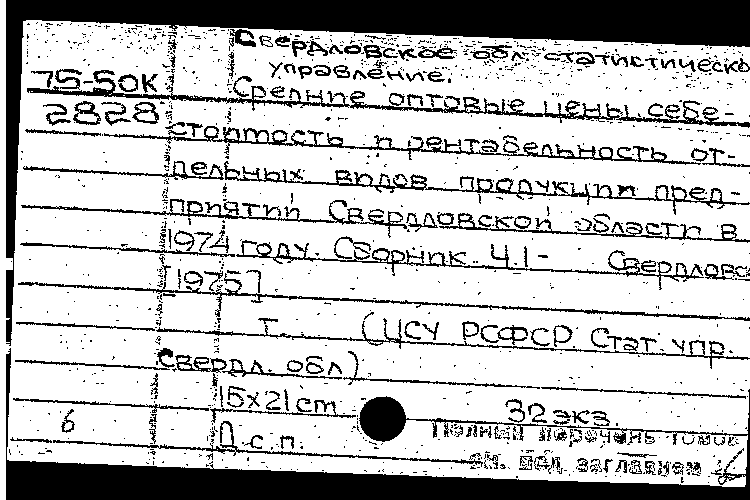 Свердловское обл статистическо
управление.
75-50К
Средние оптовые цены, себе-
2828
стоимость и рентабельность от-
дельных видов продукции пред-
приятий Свердловской области в
1974 году. Сборник. Ч.1- Свердловс
[1975]
т. (ЦСУ РСФСР Стат. упр.
Свердл. обл)
15х21cm 32 экз.
6
Д.с.п.
Полный перечень томов
см. под заглавием